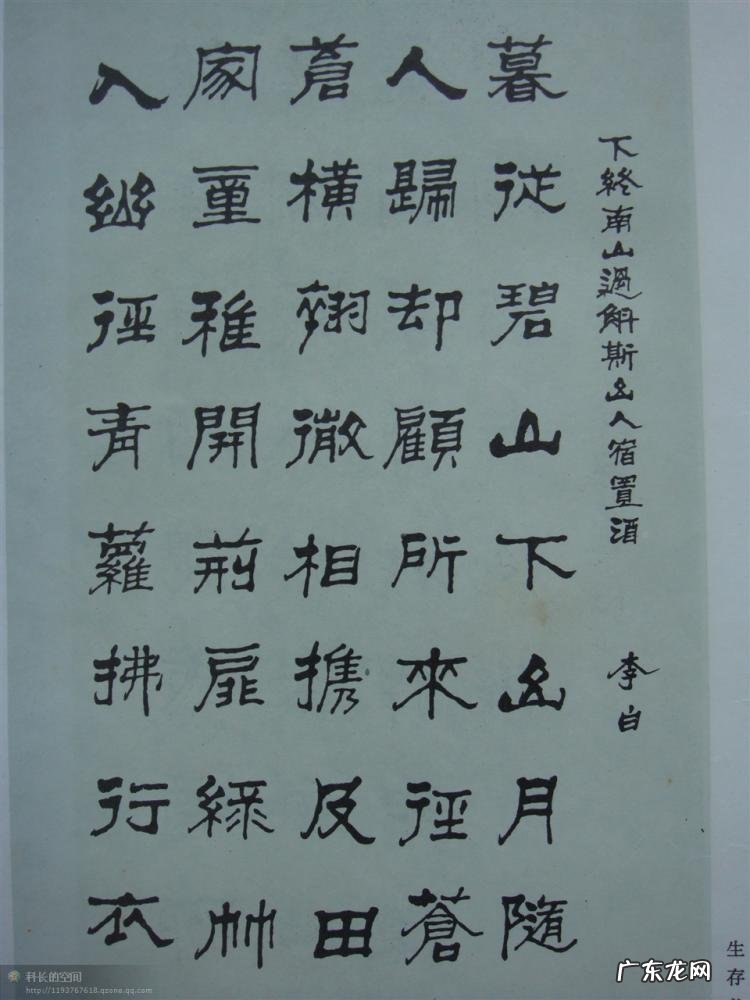 下終南山過斛斯山人宿置酒 李白
暮從碧山下山月隨
人歸却顧所來徑蒼
蒼橫翔微相携及田
家童稚開荊扉綠竹
入幽徑青蘿拂行衣
生存
科长的空间
http://1193767618.qzone.qq.com
广东龙网